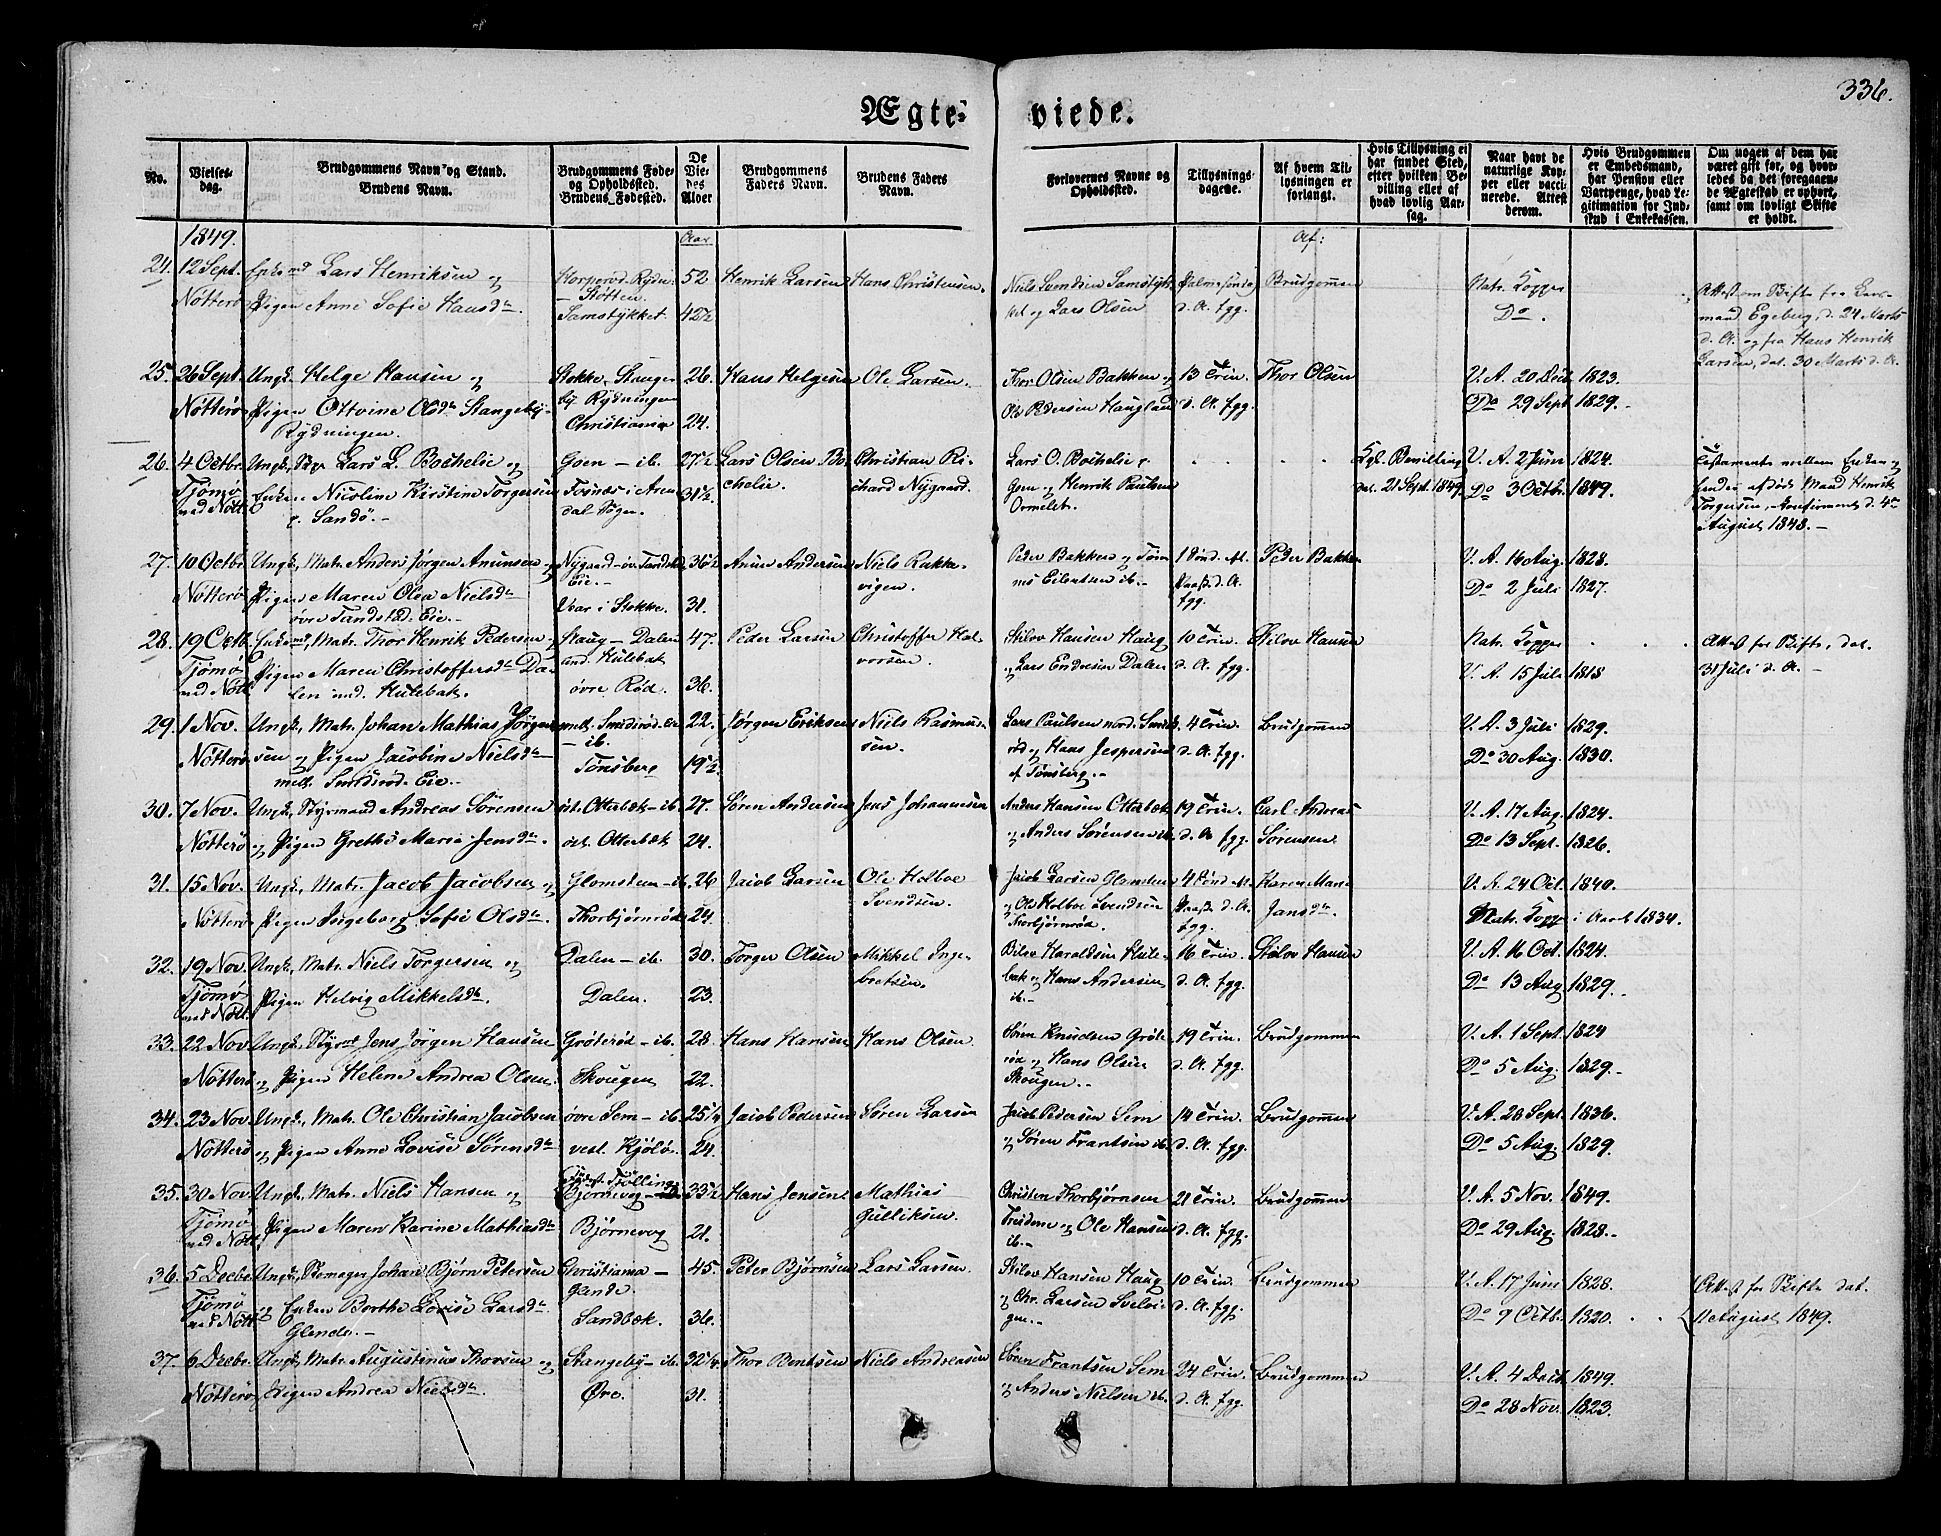 336.
Ægte- viede.
No.
Vielses-
dag.
Brudgommens Navn og Stand.
Brudens Navn.
Brudgommens Føde-
og Opholdssted.
Brudens Fødested.
De
Vie-
des
Alder
Brudgommens
Faders Navn.
Brudens Faders
Navn.
Forlovernes Navne og
Opholdssted.
Tillysnings-
dagene.
Af hvem Til-
lysningen er
forlangt.
Hvis Tillysning ei
har fundet Sted,
efter hvilken Be-
villing eller af
hvad lovlig Aar-
sag.
Naar havt de
naturlige Kop-
per eller vacci-
nerede. Attest
derom.
Hvis Brudgommen
er Embedsmand,
har Pension eller
Vartpenge, hvad Le-
gitimation for Ind-
skud i Enkekassen.
Om nogen af dem har
været gift før, og hvor-
ledes da det foregaaen-
de Ægteskab er ophørt,
samt om lovligt Skifte
er holdt.
1849. Aar Af:
24. 12 Sept. Lars Henriksen og 52 Henrik Larsen Hans Christensen. Brudgommen Natr. Kopper
Nötterö Pigen Anne Sofie Hansdtr. Samstykket 42½ og Lars Olsen d. A. fgg. Do.
mand Egeberg, d. 24 Marts
d. A. og fra Hans Henrik
Larsen, dat. 30 Marts d. A.
25. 26 Sept. Ungk. Helge Hansen og Stokke, 26. Hans Helgesen Ole Larsen. Thor Olsen Bakken og 13 Trin. Thor Olsen V. A. 20 Decb. 1823.
Nötterö Pigen Ottvine Olsdtr Stangeby- Rydningen Ole Pedersen Haugland d. A. fgg. Do 29 Sept 1829.
Rydningen. Christiania 24.
26. 4 Octbr. Ungk. Lars L. Bochelie og Goen - ib. 27½ Lars Olsen Bo- Christian Ri- Lars O. Bochelie Kgl. Bevilling V. A. 2 Juni 1824. Testamente mellem Enken og
Tjömö Enken Nicoline Kirstine Torgersen 31½ chelie. chard Nygaard. og Henrik Paulsen dat. 21 Sept. 1849. Do 3 Octbr. 1849. hendes afdøde Mand Henrik
med Nött. Sandö. Ormelet. Torgersen, confirmeret d. 4de
August 1848.
27. 10 Octbr. Ungk. Matr. Anders Jørgen Amunsen og 36½ Anun Andersen Niels Rakke- Peder Bakken og 1 Sønd. Af. Peder Bakken V. A. 16 Aug. 1828.
Nötterö Pigen Maren Olea Nielsdtr Eie. vigen. Eilertsen ib. Paaske d. A. Do 2 Juli 1827.
Eie. i Stokke. 31. fgg.
28. 19 Octb. Matr. Thor Henrik Pedersen og Haug - Dalen 47. Peder Larsen Christoffer Hal- Stilov Hansen Haug 10 Trin. Stilov Hansen Natr. Kopper Attest for Skifte, dat.
Tjömö Pigen Maren Christoffersdtr Da- und. Hulebak vorsen. og Lars Endresen Dalen d. A. fgg. V. A. 15 Juli 1818 31 Juli d. A.
med Nött. len und. Hulebak. øvre Rød. 36.
29. 1 Nov. Ungk. Matr. Johan Mathias Jörgen- mell. Smidsrød-Eie 22. Jørgen Eriksen Niels Rasmus- Lars Paulsen nord. Smids- 4 Trin. Brudgommen V. A. 3 Juli 1829.
Nötterö sen og Pigen Jacobine Nielsdtr - ib. sen. rød og Hans Jespersen d. A. fgg. Do 30 Aug. 1830.
mell. Smidsrød Eie. Tønsberg 19½ af Tønsberg.
30. 7 Nov. Ungk. Styrmand Andreas Sörensen Otterbæk - ib. 27. Sören Andersen Jens Johannesen Anders Hansen Otterbæk 19 Trin. Carl Andreas V. A. 17 Aug. 1824.
Nötterö og Pigen Grethe Marie Jensdtr. Otterbæk 24. og Anders Sørensen ib. d. A fgg. Sørensen. Do 13 Sept. 1826.
31. 15 Nov. Ungk. Matr. Jacob Jacobsen og Glomsten - ib. 26 Jacob Larsen Ole Holboe Jacob Larsen Glomsten 4 Sønd. Af. Karen Marie V. A. 24 Oct. 1840.
Nötterö Pigen Ingeborg Sofie Olsdtr. Thorbjørnrød 24. Svendsen. og Ole Holboe Svendsen Paaske d. A. Jansdtr. Natr. Kopp. i Aaret 1834.
Thorbjørnrød. fgg.
32. 19 Nov. Ungk. Matr. Niels Torgersen og Dalen - ib. 30. Torger Olsen Mikkel Inge- Haraldsen Hule- 16 Trin. Stilov Hansen V. A. 16 Oct. 1824.
Tjömö Pigen Helvig Mikkelsdtr. Dalen. 23. bretsen. bak og Hans Andersen d. A. fgg. Do 13 Aug 1829.
med Nött. ib.
33. 22 Nov. Ungk. Styrmd. Jens Jörgen Hansen Gröterød - ib. 28. Hans Hansen Hans Olsen. Sören Knudsen Gröte- 19 Trin. Brudgommen V. A. 1 Sept. 1824
Nötterö og Pigen Helene Andrea Olsen. Skougen 22. rød og Hans Olsen d. A. fgg. Do 5 Aug. 1829.
Skougen.
34. 23 Nov. Ungk. Matr. Ole Christian Jacobsen övre Sem - ib. 25¼ Jacob Pedersen Sören Larsen Jacob Pedersen Sem 14 Trin. Brudgommen V. A. 28 Sept. 1836.
Nötterö og Pigen Anne Lovise Sörensdtr vest. Kjölö. 24. og Sören Frantsen ib. d. A. fgg. Do 5 Aug. 1829.
35. 30 Nov. Ungk. Matr. Niels Hansen og Bjørnevog 33½ Hans Jensen Mathias Christen Thorbjørnsen 21 Trin. Brudgommen V. A. 5 Nov. 1849.
Tjömö Pigen Maren Karine Mathiasdtr Bjørnevog 21. Gulliksen. og Ole Hansen d. A. fgg. Do 29 Aug. 1828.
med Nött. ib.
36. 5 Decbr. Ungk. Johan Bjørn Petersen Christiania - 45. Peter Bjørnsen Lars Larsen. Stilov Hansen Haug 10 Trin. Brudgommen V. A. 17 Juni 1828. Attest for Skifte dat.
Tjömö og Enken Berthe Lovise Larsdtr Glende. og Chr. Larsen d. A. fgg. Do 9 Octb. 1820. 11 August 1849.
med Nött. Glende. Sandbæk. 36.
37. 6 Decbr. Ungk. Matr. Augustinus Thorsen og Stangeby - ib. 32¼ Thor Bentsen Niels Andreasen Sören Frantsen Sem 24 Trin. Brudgommen V. A. 4 Decb. 1849.
Nötterö Pigen Andrea Nielsdtr. Øre. 31. og Anders Nielsen ib. d. A. fgg. Do 28 Nov. 1823.